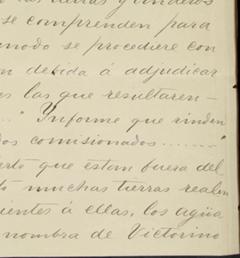 las tierras y linderos
se comprenden para
modo se procediere con
n debida á adjudicar
s las que resultaren —
..." Informe que rinden
dos comisionados ........"
erto que estam fuera del
tó muchas tierras realen
ientes á ellas, los agüa
nombra de Victorino